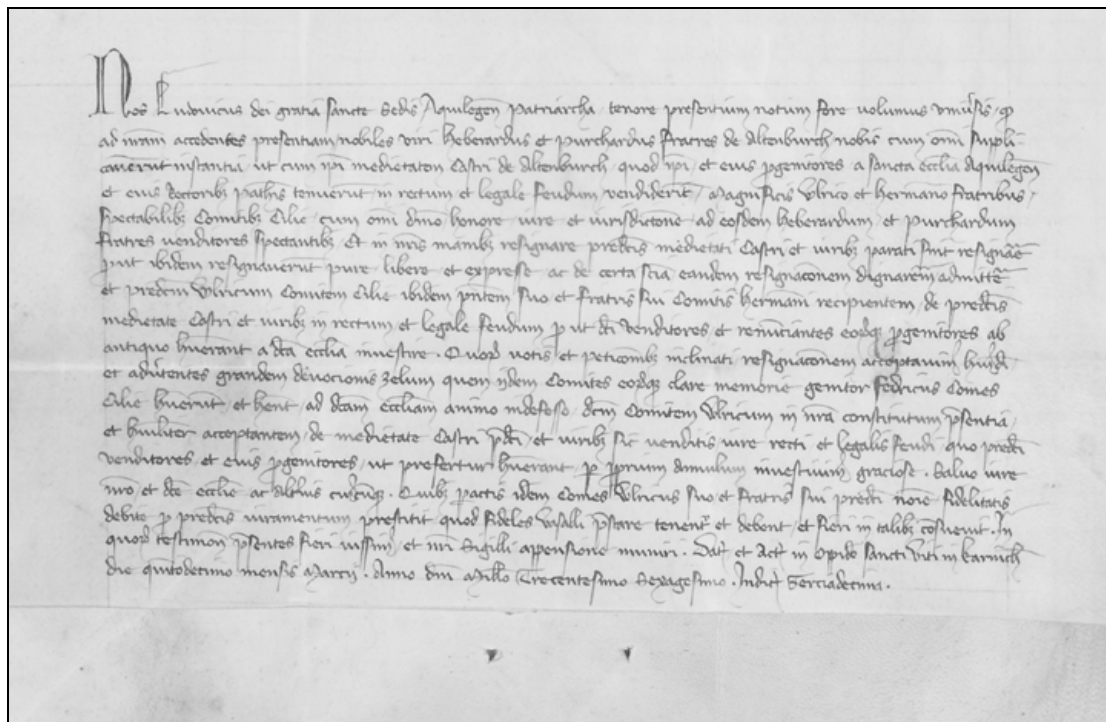 Nos Ludovicus dei gratia sancte Sedis Aquilegen Patriarcha tenore presentium notum fore volumus univsis, q
ad nram accedentes presentiam nobiles viri Heberardus et Purchardus Fratres de Altenburch nobis cum omi suppli
caverut instantia, ut cum ipi medietatem Castri de Altenburch, quod ipi, et eius pgenitores a sancta ecclia Aquilegen
et eius Rectorib tenuerut, in rectum et legale feudum, vendiderit, Magnificis Ulrico et Hermano Fratribus,
Spectabilib Comitib Cilie, cum omi dnio honore, iure et iurisdictone, ad eosdem Heberardum et Purchardum
Fratres venditores spectantib, Et in nris manib resignare predctis medietati Castri et iurib parati sint
put ibidem resignaverut pure, libere, et expresse ac de certa scia, eandem resignaconem dignarem admitte
et predcm Ulricum Comitem Cilie ibidem pntem suo et fratris sui Comitis Hermani recipientem, de predctis
medietate Castri et iurib in rectum, et legale feudum p ut dci venditores et renunciantes eordq pgenitores ab
antiquo huerant a dca ecclia investire. Quor votis et peticonib inclinati resignaconem acceptavim
et advtentes grandem devocionis zelum quem iidem Comites eordq clare memorie genitor Fedricus Comes
Cilie huerut, et hent, ad dcam eccliam animo indefesso, dcm Comitem Ulricum in nra constitutum psentia,
et huilitr acceptantem, de medietate Castri pdci, et iurib sic venditis iure recti et legalis feudi, quo predci
venditores, et eius pgenitores, ut prefertur huerant, p pprium Annulum investivim, graciose. Salvo iure
nro, et dce ecclie ac altius. Quib pactis idem Comes Ulricus suo et Fratris sui predci noie fidelitatis
debite p predctis iuramentum prestitit quod fideles vasalli pstare tenent et debent, et fieri in talib cosuevit. In
quor testimon psentes fieri iussim, et nri Sigilli appensione muniri. Dat et Act in Opido Sancti Viti in Karinth
die quitodecimo mensis Marcii. Anno dni Millo Trecentesimo Sexagesimo. Indict Terciadecima.